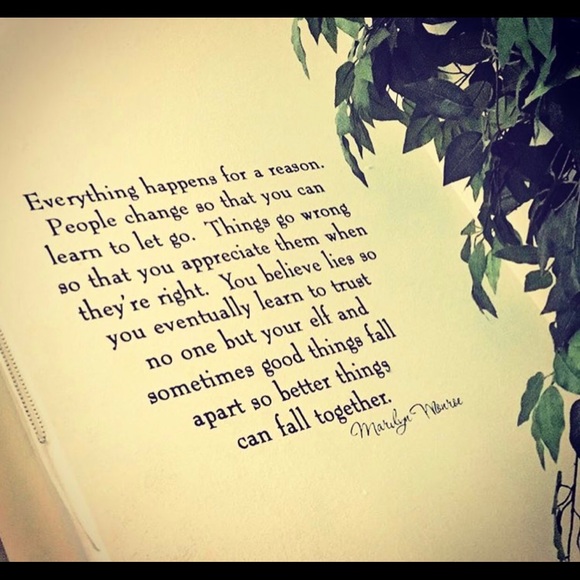 Everything happens for a reason.
People change so that you can
learn to let go. Things go wrong
so that you appreciate them when
they're right. You believe lies so
you eventually learn to trust
no one but your elf and
sometimes good things fall
apart so better things
can fall together.
Marilyn Monroe